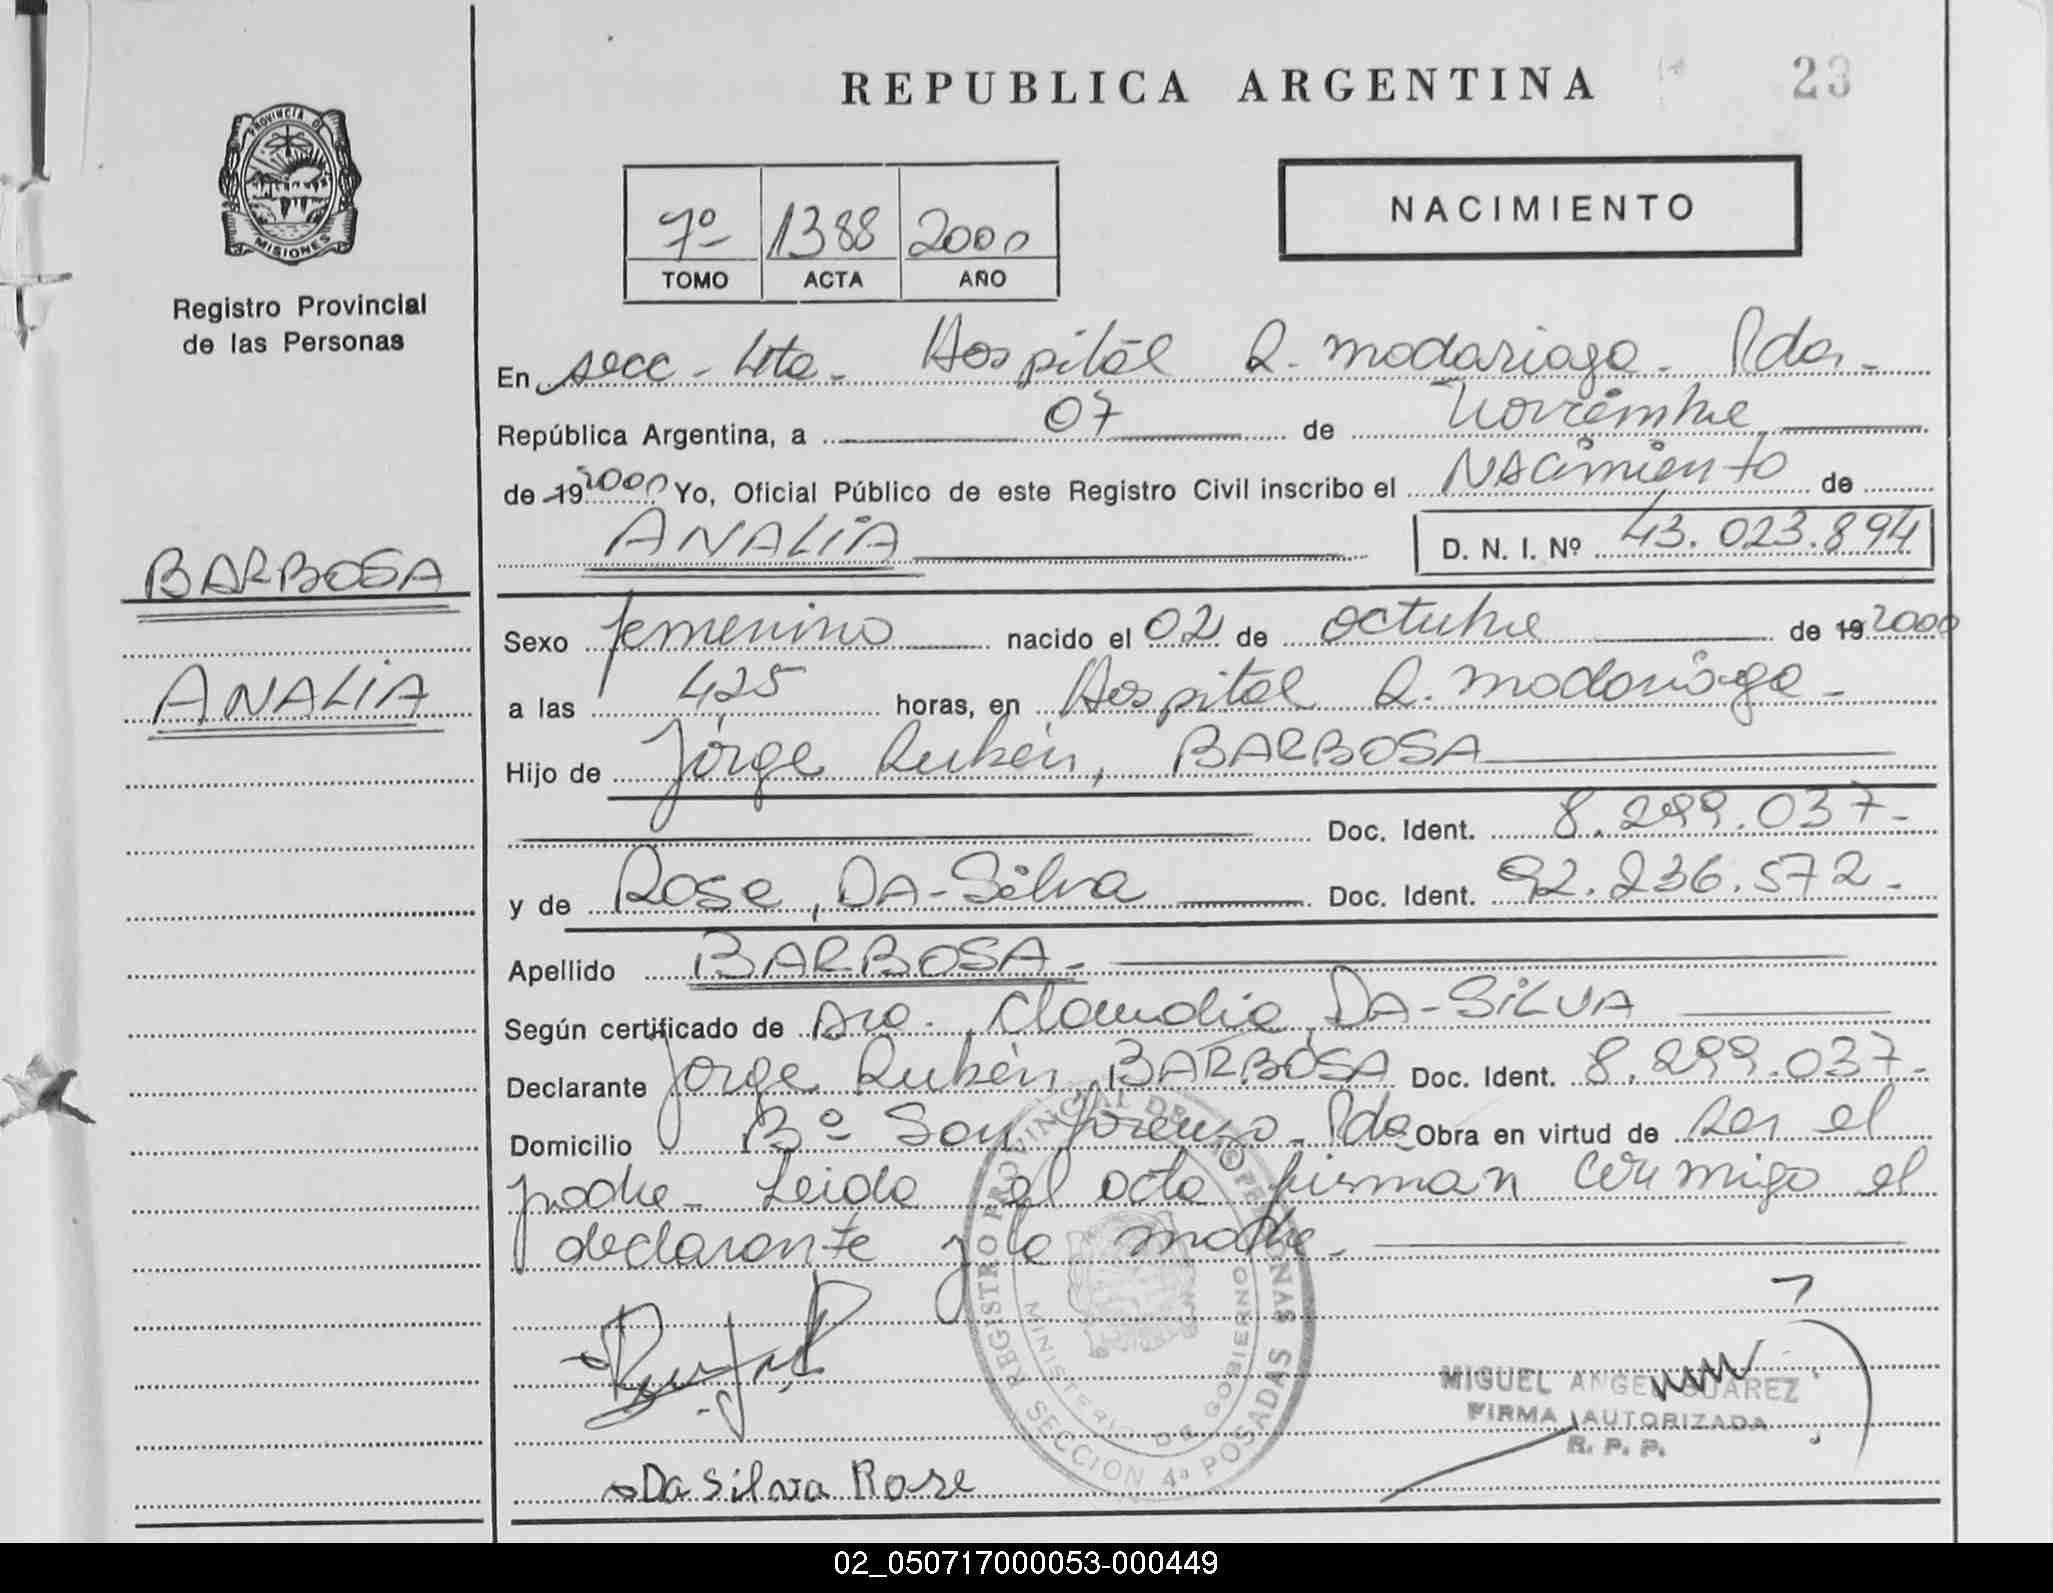 REPUBLICA ARGENTINA
23
PROVINCIA DE
MISIONES
Registro Provincial
de las Personas
7º 1388 2000
TOMO ACTA AÑO
NACIMIENTO
En secc - 4ta - Hospital R. Madariaga - Pdas -
República Argentina, a 07 de Noviembre
de 19 2000 Yo, Oficial Público de este Registro Civil inscribo el Nacimiento de
ANALIA D. N. I. Nº 43.023.894
BARBOSA
ANALIA
Sexo femenino nacido el 02 de octubre de 19 2000
a las 425 horas, en Hospital R. Madariaga -
Hijo de Jorge Rubén, BARBOSA
Doc. Ident. 8.299.037-
y de Rose, DA-Silva Doc. Ident. 92.236.572-
Apellido BARBOSA -
Según certificado de Dra. Claudia, DA-SiLVA
Declarante Jorge Rubén, BARBOSA Doc. Ident. 8.299.037-
Domicilio Bº San Lorenzo - Pdas Obra en virtud de ser el
padre - Leida el acta firman conmigo el
declarante y la madre -
REGISTRO PROVINCIAL DE LAS PERSONAS
MINISTERIO DE GOBIERNO
SECCION 4ª POSADAS
MIGUEL ANGEL SUAREZ
FIRMA AUTORIZADA
R. P. P.
Da Silva Rose
02_050717000053-000449